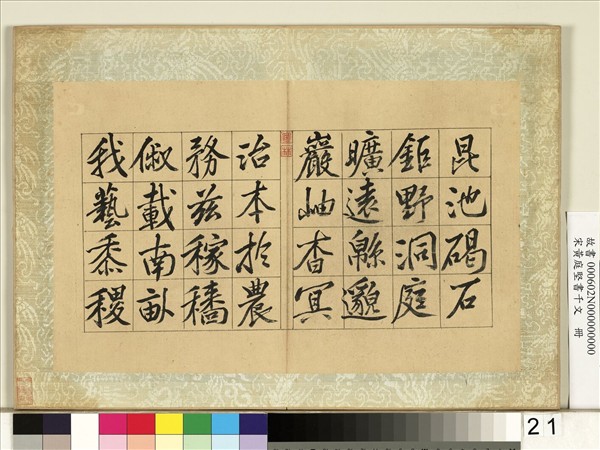 昆池碣石
鉅野洞庭
曠遠緜邈
巖岫杳冥
治本扵農
務兹稼穡
俶載南畝
我藝黍稷
故書 000602N000000000
宋黃庭堅書千文 冊
21